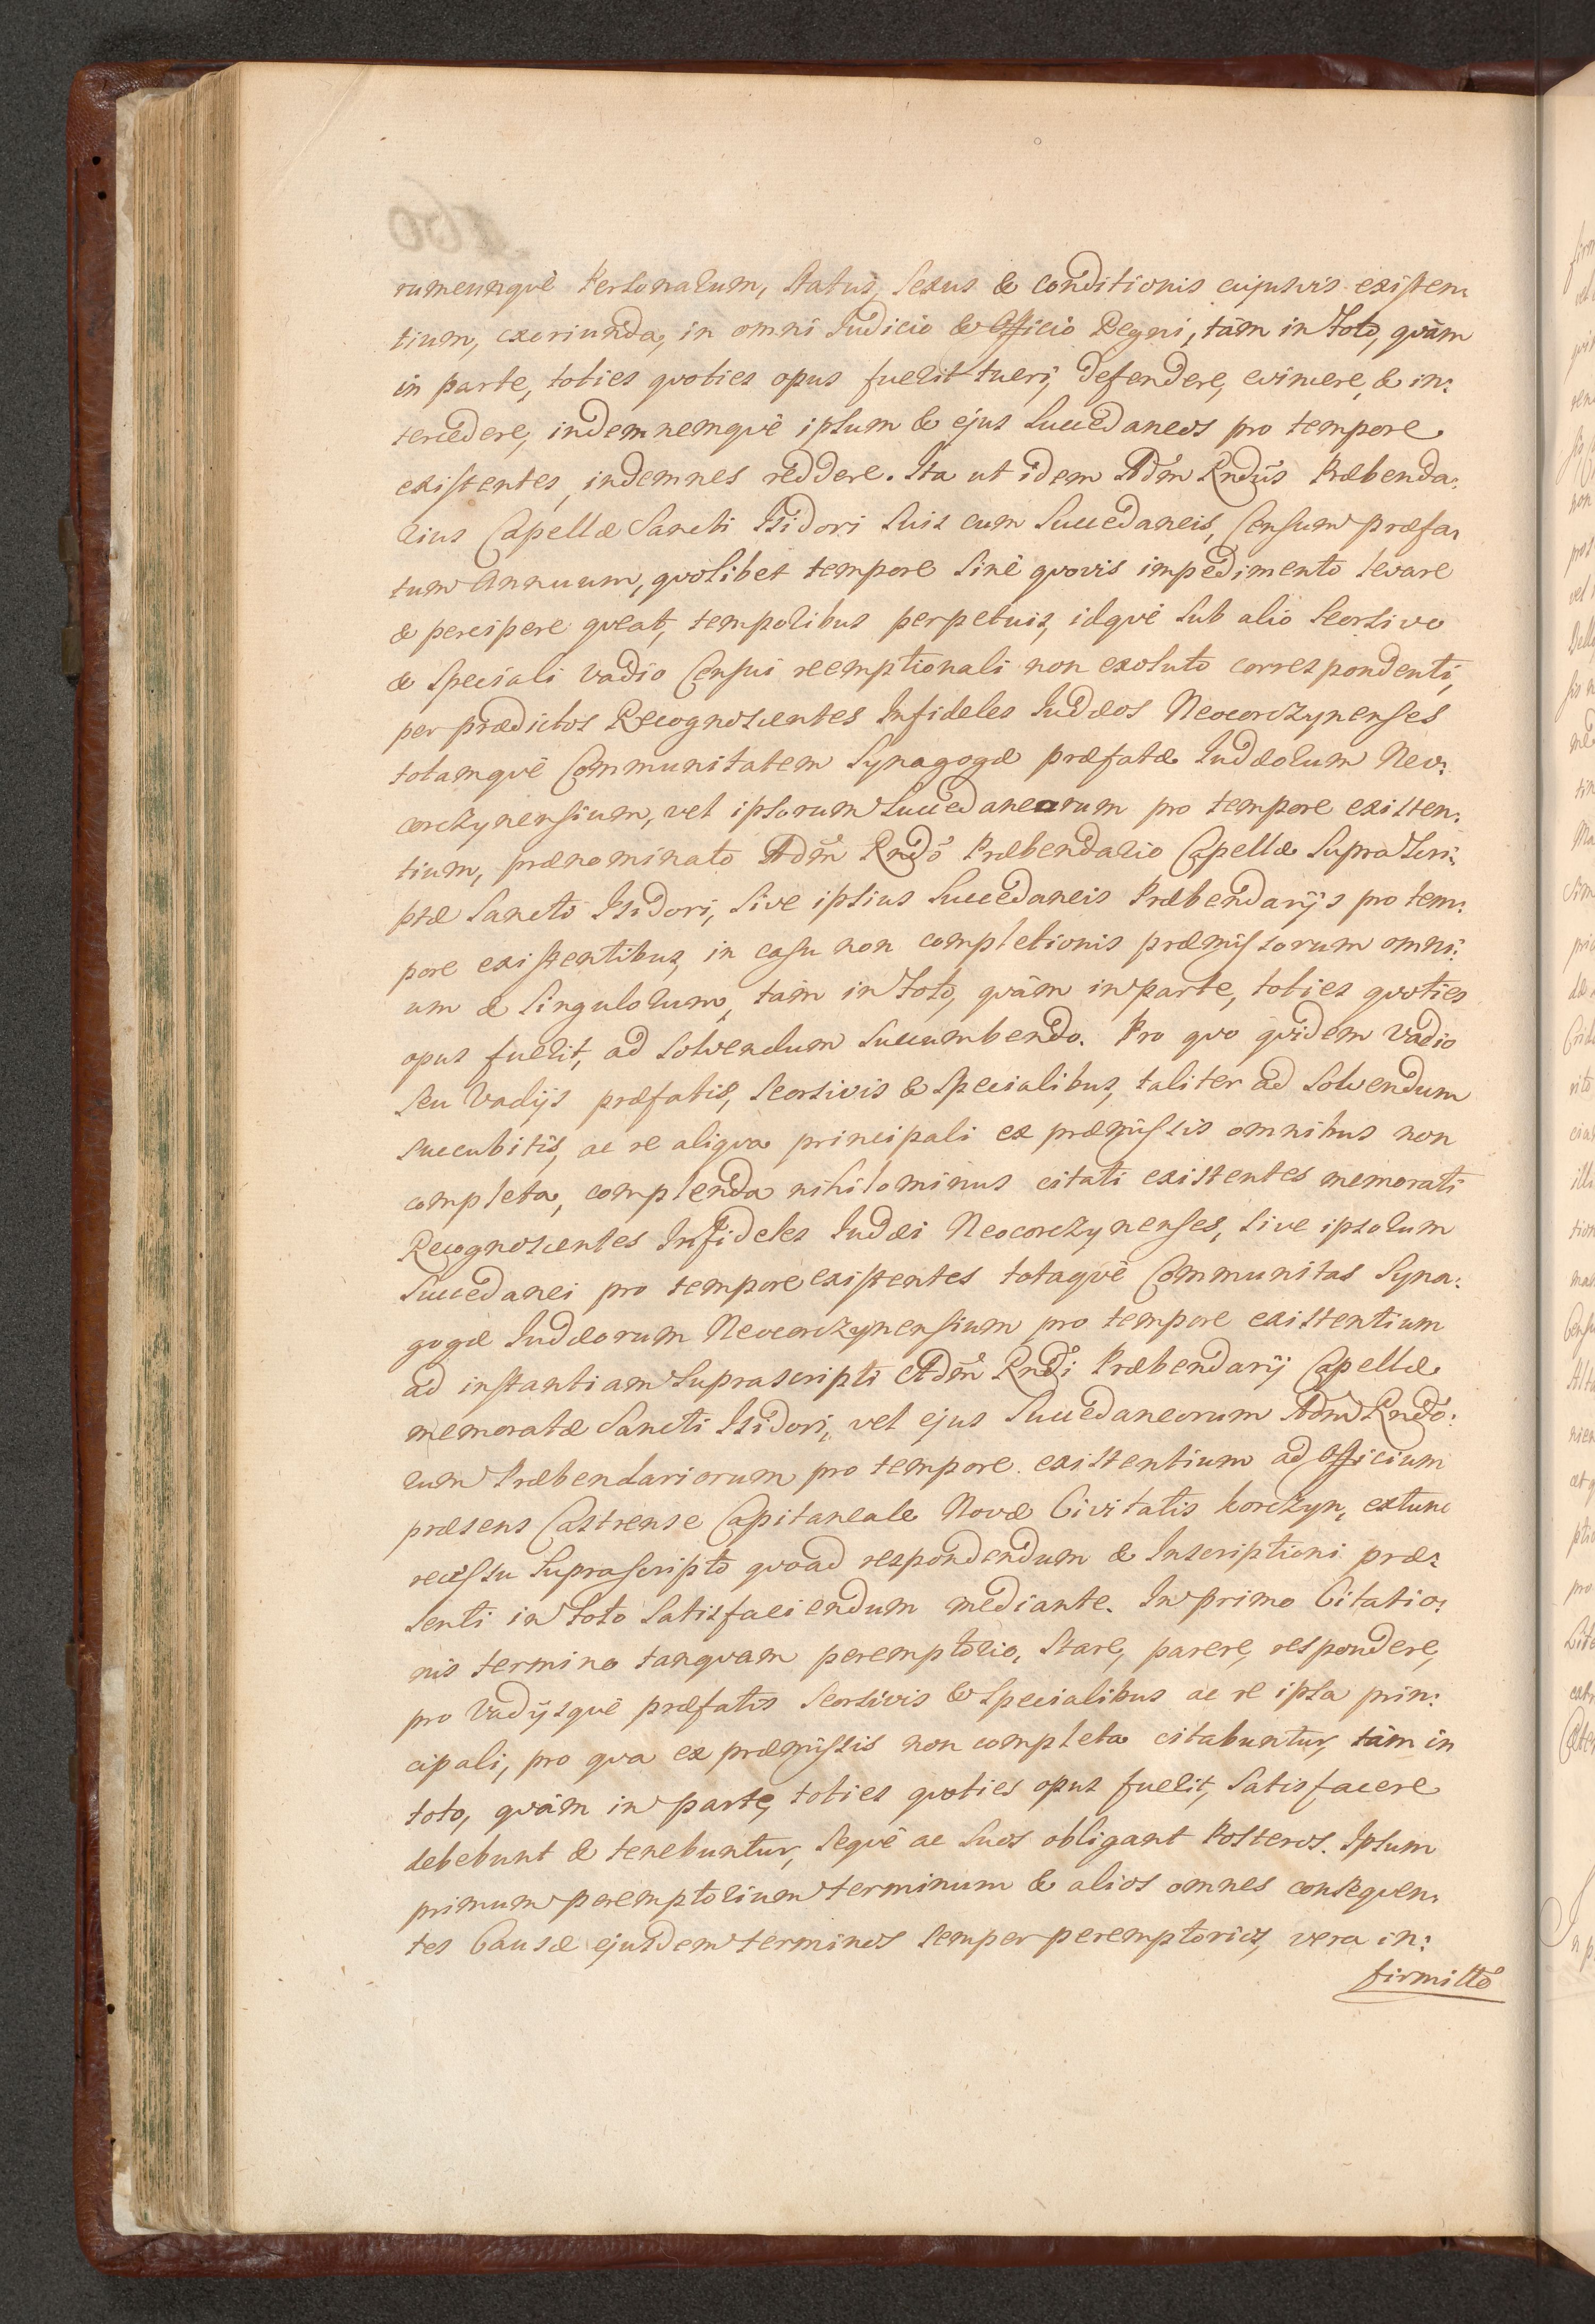 rumcunqvè Personarum, Status, Sexus & conditionis cujusvis existen:
tium, exoriunda, in omni Iudicio & Officio Regni, tàm in Toto, qvàm
in parte, toties qvoties opus fuerit tueri, defendere, evincere, & in:
tercedere, indemnemqvè ipsum & ejus Succedaneos pro tempore
existentes, indemnes reddere. Ita ut idem Adm̃ Rndus Præbenda:
rius Capellæ Sancti Isidori Suis cum Succedaneis, Censum præfa:
tum Annuum, qvolibet tempore Sinè qvovis impedimento levare
& percipere qveat, temporibus perpetuis, idqvè Sub alio Seorsivo
& Speciali vadio Censui reemptionali non exoluto correspondenti,
per prædictos Recognoscentes Infideles Iudæos Neocorczynenses
totamqvè Communitatem Synagogæ præfatæ Iudæorum Neo:
corczynensium, vel ipsorum Succedaneorum pro tempore existen:
tium, prænominato Adm̃ Rndo Præbendario Capellæ Supra Scri:
ptæ Sancto Isidori, Sive ipsius Succedaneis Præbendarijs pro tem:
pore existentibus, in casu non completionis præmissorum omni:
um & Singulorum, tàm in Toto, qvàm in parte, toties qvoties
opus fuerit, ad Solvendum Succumbendo. Pro qvo qvidem Vadio
Seu Vadijs præfatis, Seorsivis & Specialibus, taliter ad Solvendum
succubitis, ac re aliqva principali ex præmissis omnibus non
completa, complenda nihilominus citati existentes memorati
Recognoscentes Infideles Iudæi Neocorczynenses, Sive ipsorum
Succedanei pro tempore existentes totaqvè Communitas Syna:
gogæ Iudæorum Neocorczynensium pro tempore existentium
ad instantiam Suprascripti Adm̃ Rndi Præbendarij Capellæ
memoratæ Sancti Isidori, vel ejus Succedaneorum Adm̃ Rndo:
rum Præbendariorum pro tempore existentium ad Officium
præsens Castrense Capitaneale Novæ Civitatis Korczyn, extunc
recessu Suprascripto qvoad respondendum & Inscriptioni præ:
senti in Toto Satisfaciendum mediante. In primo Citatio:
nis termino tanqvam peremptorio, Stare, parere, respondere,
pro Vadijsqvè præfatis Seorsivis & Specialibus ac re ipsa prin:
cipali, pro qva ex præmissis non completa citabuntur, tàm in
toto, qvàm in parte, toties qvoties opus fuerit, Satisfacere
debebunt & tenebuntur, Seqvè ac Suos obligant Posteros. Ipsum
primum peremptorium terminum & alios omnes conseqven:
tes Causæ ejusdem terminos Semper peremptorios, vera in:
firmittẽ